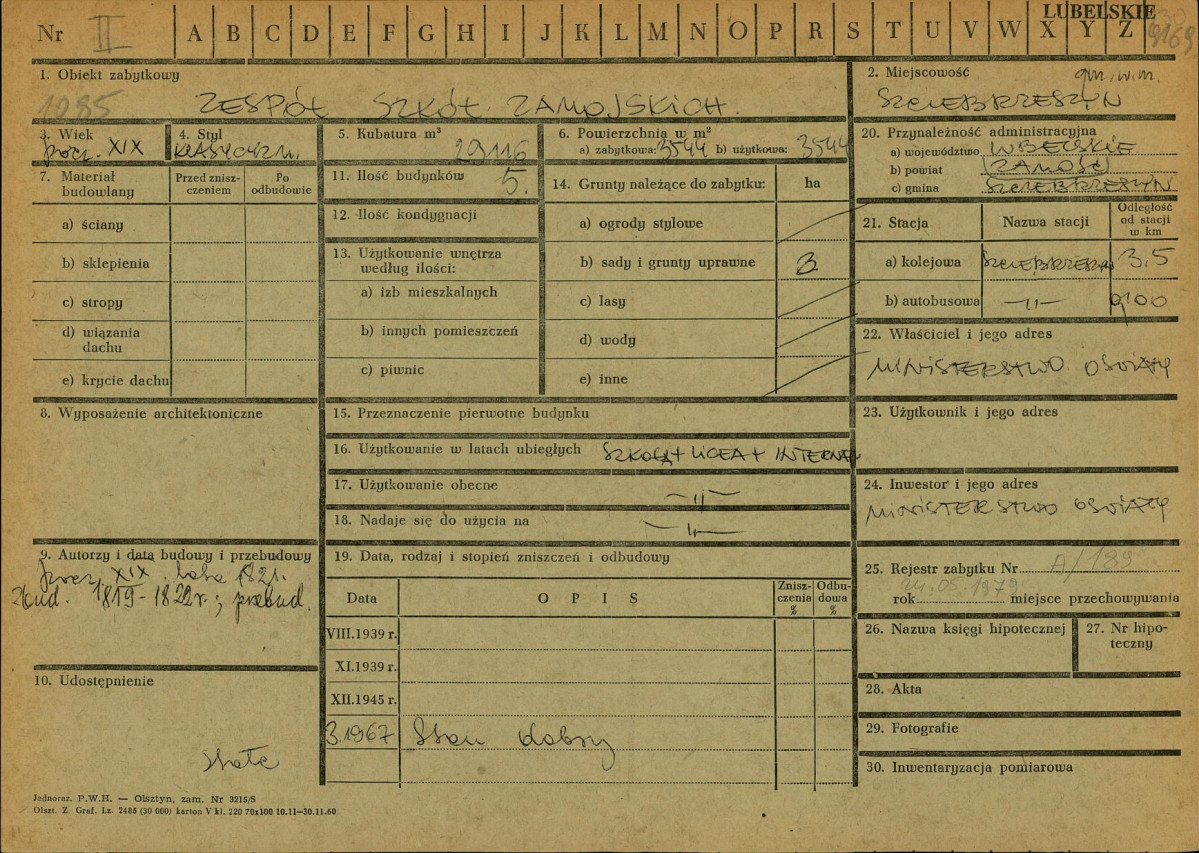 Nr II A B C D E F G H I J K L M N O P R S T U V W X Y Z
LUBELSKIE
9169
1. Obiekt zabytkowy
1085 ZESPÓŁ SZKÓŁ ZAMOJSKICH.
2. Miejscowość gm. w. m.
SZCZEBRZESZYN
3. Wiek
pocz. XIX
4. Styl
KLASYCYZM.
5. Kubatura m³
29116
6. Powierzchnia w m²
a) zabytkowa: 3544 b) użytkowa: 3544
7. Materiał budowlany
Przed zniszczeniem
Po odbudowie
a) ściany
b) sklepienia
c) stropy
d) wiązania dachu
e) krycie dachu
8. Wyposażenie architektoniczne
9. Autorzy i data budowy i przebudowy
XIX 1821.
zbud. 1819-1822 r.; przebud.
10. Udostępnienie
stałe
11. Ilość budynków 5.
12. Ilość kondygnacji
13. Użytkowanie wnętrza
według ilości:
a) izb mieszkalnych
b) innych pomieszczeń
c) piwnic
14. Grunty należące do zabytku: ha
a) ogrody stylowe
b) sady i grunty uprawne 3
c) lasy
d) wody
e) inne
15. Przeznaczenie pierwotne budynku
16. Użytkowanie w latach ubiegłych SZKOŁA + LICEA + INTERNAT
17. Użytkowanie obecne —11—
18. Nadaje się do użycia na —11—
19. Data, rodzaj i stopień zniszczeń i odbudowy
Data OPIS Zniszczenia % Odbudowa %
VIII.1939 r.
XI.1939 r.
XII.1945 r.
3.1967 Stan dobry
20. Przynależność administracyjna
a) województwo LUBELSKIE
b) powiat ZAMOŚĆ
c) gmina SZCZEBRZESZYN
21. Stacja Nazwa stacji Odległość od stacji w km
a) kolejowa SZCZEBRZESZYN 3,5
b) autobusowa —11— 0,100
22. Właściciel i jego adres
MINISTERSTWO OŚWIATY
23. Użytkownik i jego adres
24. Inwestor i jego adres
MINISTERSTWO OŚWIATY
25. Rejestr zabytku Nr A/189
rok 24.05.1979 miejsce przechowywania
26. Nazwa księgi hipotecznej
27. Nr hipoteczny
28. Akta
29. Fotografie
30. Inwentaryzacja pomiarowa
Jednoraz. P.W.H. — Olsztyn, zam. Nr 3215/S
Olszt. Z. Graf. Lz. 2485 (30 000) karton V kl. 220 70x100 10.11—30.11.60